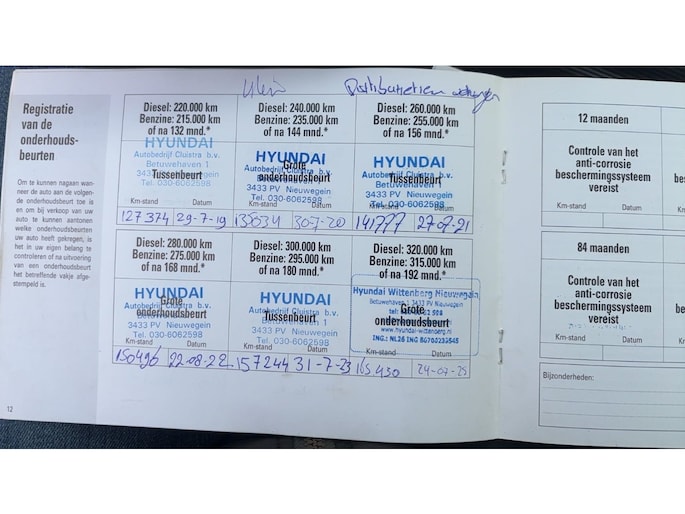 Registratie
van de
onderhouds-
beurten
Om te kunnen nagaan wan-
neer de auto aan de volgen-
de onderhoudsbeurt toe is
en om bij verkoop van uw
auto te kunnen aantonen
welke onderhoudsbeurten
uw auto heeft gekregen, is
het in uw eigen belang te
controleren of na uitvoering
van een onderhoudsbeurt
het betreffende vakje afge-
stempeld is.
12
Klein
Distributieriem
Diesel: 220.000 km
Benzine: 215.000 km
of na 132 mnd.*
HYUNDAI
Autobedrijf Cluistra b.v.
Betuwehaven 1
Tussenbeurt
3433 PV Nieuwegein
Tel. 030-6062598
Km-stand Datum
127374 29-7-19
Diesel: 240.000 km
Benzine: 235.000 km
of na 144 mnd.*
HYUNDAI
Grote
onderhoudsbeurt
3433 PV Nieuwegein
Tel. 030-6062598
Km-stand Datum
138034 30-7-20
Diesel: 260.000 km
Benzine: 255.000 km
of na 156 mnd.*
HYUNDAI
Autobedrijf Cluistra b.v.
Betuwehaven 1
Tussenbeurt
3433 PV Nieuwegein
Tel. 030-6062598
Km-stand Datum
141777 27-07-21
Diesel: 280.000 km
Benzine: 275.000 km
of na 168 mnd.*
HYUNDAI
Grote
Autobedrijf Cluistra b.v.
onderhoudsbeurt
3433 PV Nieuwegein
Tel. 030-6062598
Km-stand Datum
150496 22-08-22
Diesel: 300.000 km
Benzine: 295.000 km
of na 180 mnd.*
HYUNDAI
Autobedrijf Cluistra b.v.
Tussenbeurt
3433 PV Nieuwegein
Tel. 030-6062598
Km-stand Datum
157244 31-7-23
Diesel: 320.000 km
Benzine: 315.000 km
of na 192 mnd.*
Hyundai Wittenberg Nieuwegein
Betuwehaven 1 3433 PV Nieuwegein
Grote
onderhoudsbeurt
www.hyundai-wittenberg.nl
Km-stand Datum
165430 24-07-25
12 maanden
Controle van het
anti-corrosie
beschermingssysteem
vereist
Km-stand Datum
84 maanden
Controle van het
anti-corrosie
beschermingssysteem
vereist
Km-stand Datum
Bijzonderheden: